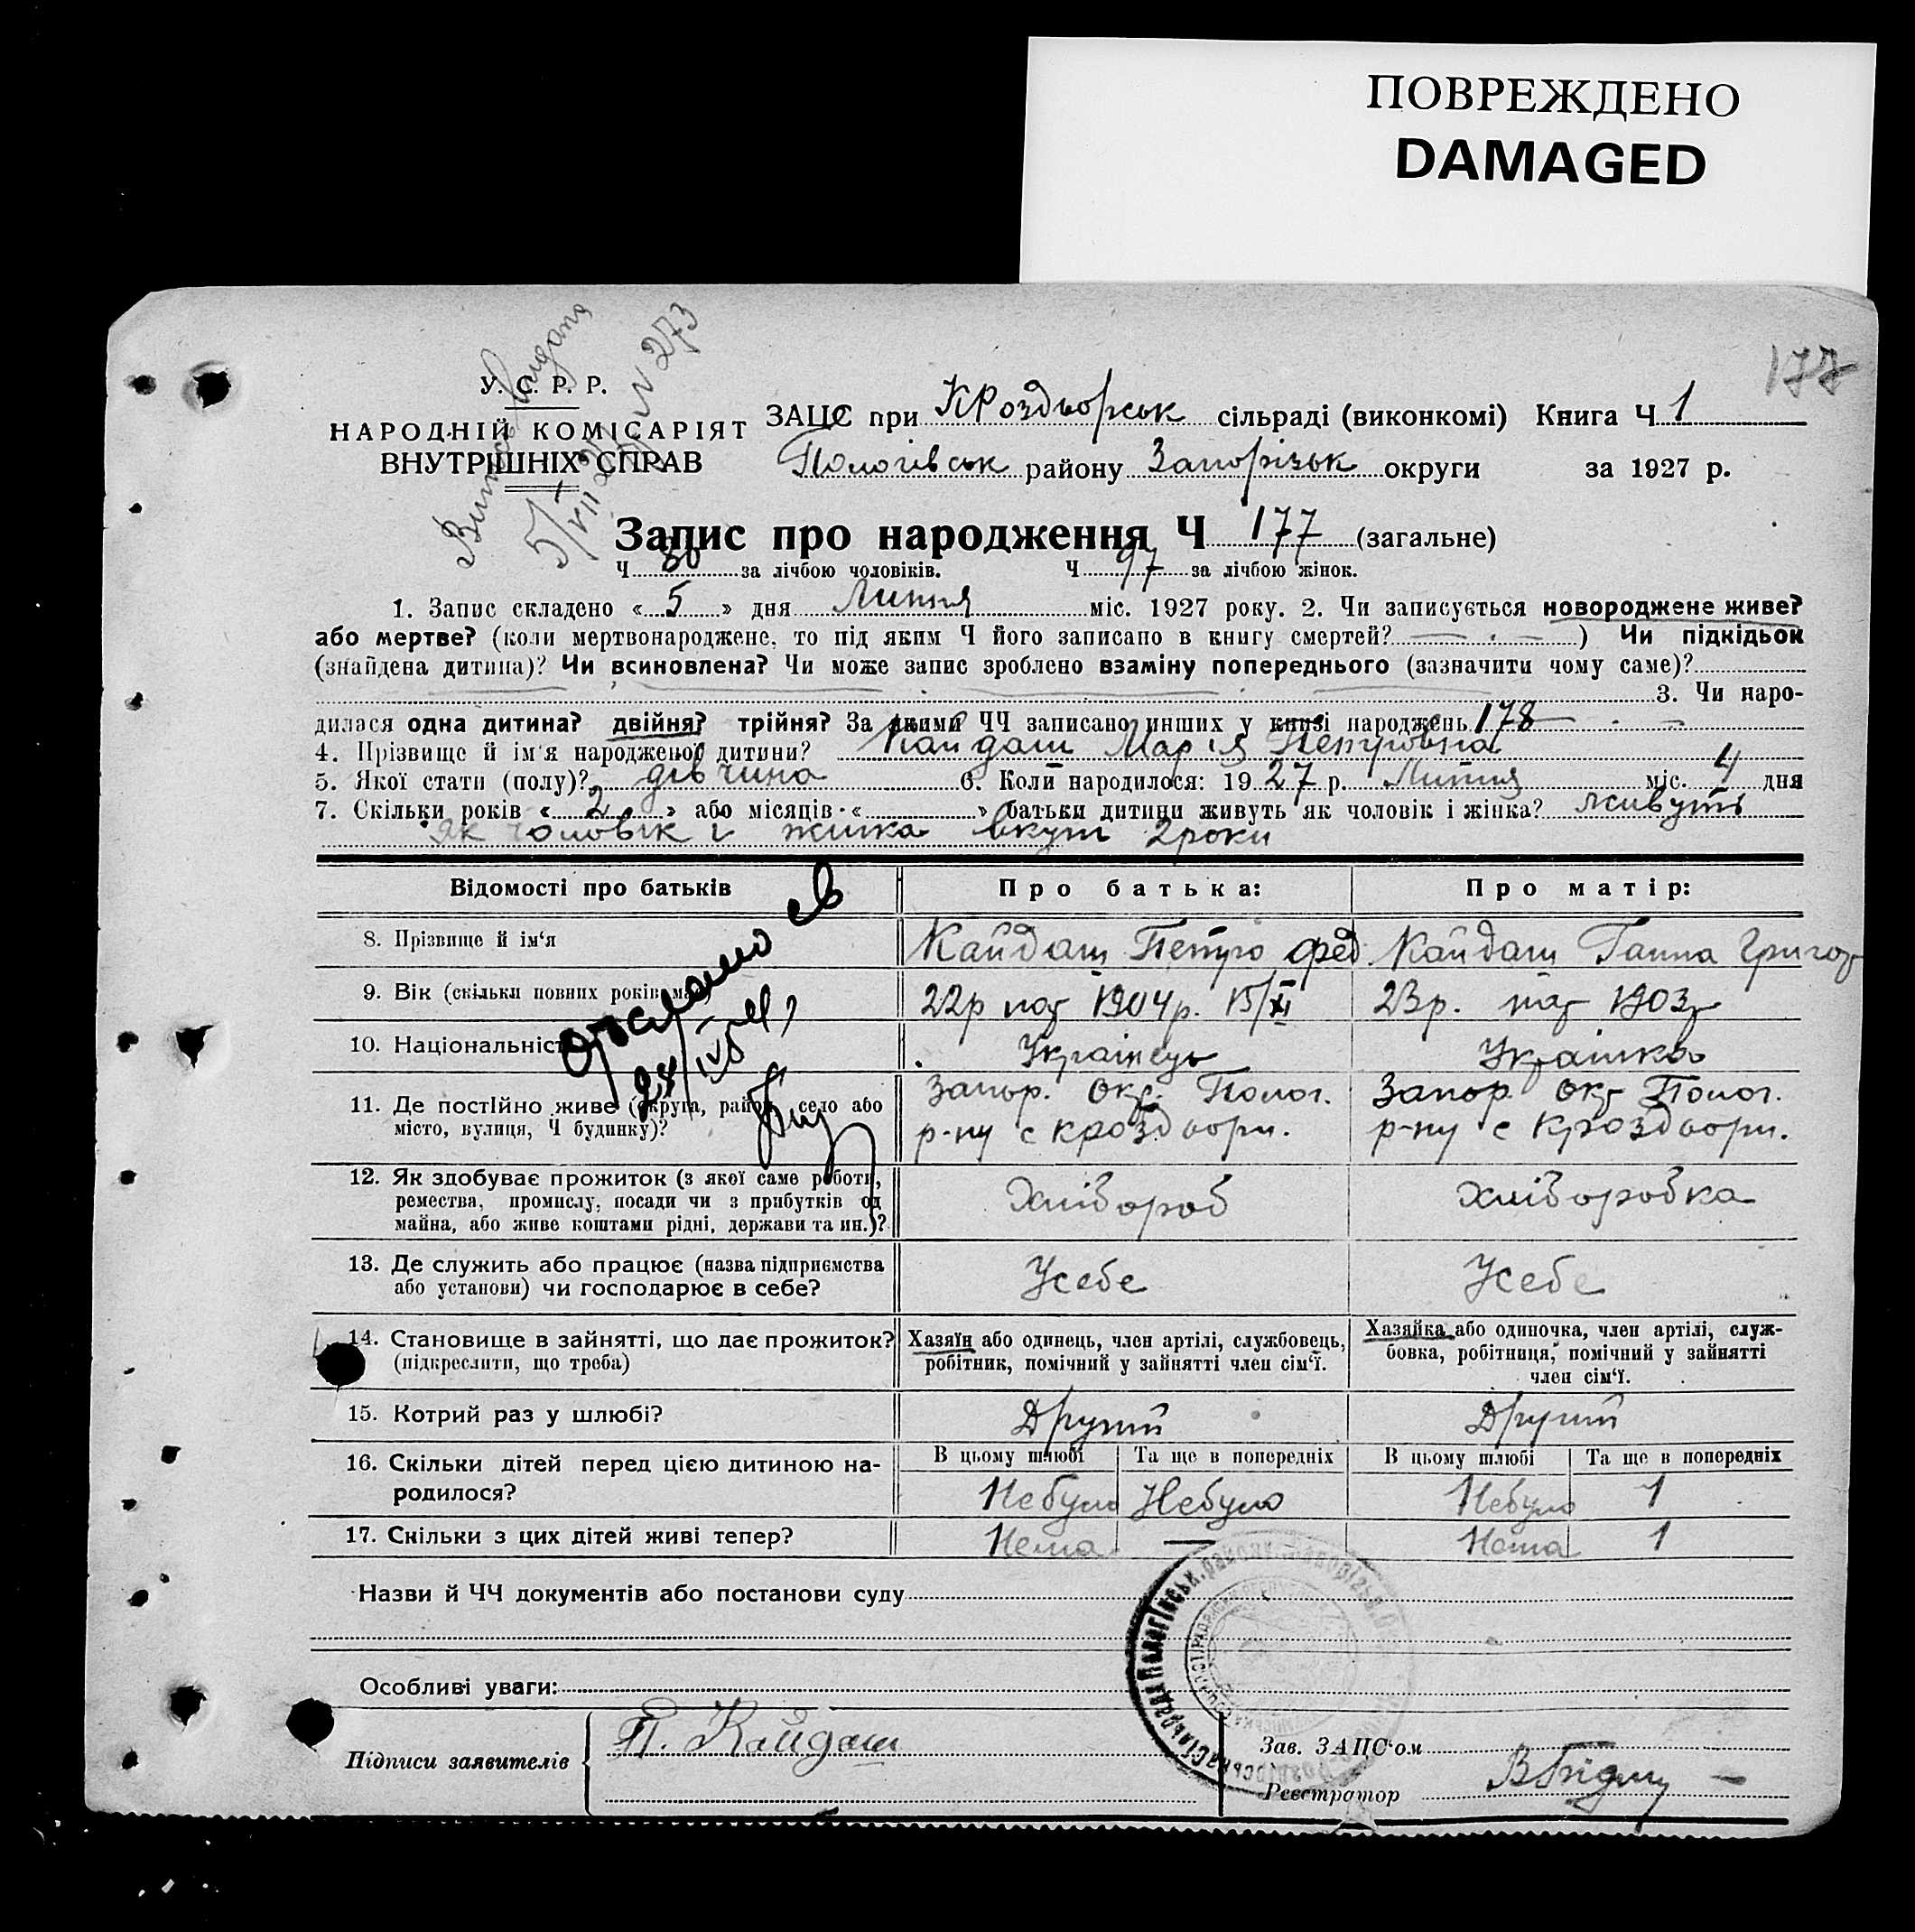 ПОВРЕЖДЕНО
DAMAGED
177
У. С. Р. Р.
НАРОДНІЙ КОМІСАРІЯТ
ВНУТРІШНІХ СПРАВ
N 273
ЗАЦС при Кроздворськ сільраді (виконкомі) Книга Ч 1
Пологівськ району Запорізьк округи за 1927 р.
Запис про народження Ч 177 (загальне)
Ч 80 за лічбою чоловіків. Ч 97 за лічбою жінок.
1. Запис складено « 5 » дня Липня міс. 1927 року. 2. Чи записується новороджене живе?
або мертве? (коли мертвонароджене, то під яким Ч його записано в книгу смертей? — . —) Чи підкідьок
(знайдена дитина)? Чи всиновлена? Чи може запис зроблено взаміну попереднього (зазначити чому саме)?
3. Чи наро-
дилася одна дитина? двійня? трійня? За якими ЧЧ записано инших у книзі народжень 178
4. Прізвище й ім'я народженої дитини? Кайдаш Марія Петровна
5. Якої стати (полу)? дівчина 6. Коли народилося: 1927 р. Липня міс. 4 дня
7. Скільки років « 2 » або місяців « » батьки дитини живуть як чоловік і жінка? живуть
як чоловік і жинка вкупі 2 роки
Відомості про батьків Про батька: Про матір:
8. Прізвище й ім'я Кайдаш Петро Фед Кайдаш Ганна Григор
9. Вік (скільки повних років має) 22р нар 1904р. 15/XI 23р. нар 1903р
10. Національність Українець Українка
11. Де постійно живе (округа, район, село або Запор. Окр. Полог. Запор. Окр Полог.
місто, вулиця, Ч будинку)? р-ну с кроздвори. р-ну с Кроздвори.
12. Як здобуває прожиток (з якої саме роботи,
ремества, промислу, посади чи з прибутків од Хлібороб Хліборобка
майна, або живе коштами рідні, держави та ин.)?
13. Де служить або працює (назва підприємства Усебе Усебе
або установи) чи господарює в себе?
14. Становище в зайнятті, що дає прожиток? Хазяїн або одинець, член артілі, службовець, Хазяйка або одиночка, член артілі, служ-
(підкреслити, що треба) робітник, помічний у зайнятті член сім'ї. бовка, робітниця, помічний у зайнятті
член сім'ї.
15. Котрий раз у шлюбі? Другий Другий
В цьому шлюбі Та ще в попередніх В цьому шлюбі Та ще в попередніх
16. Скільки дітей перед цією дитиною на-
родилося? Небуло Небуло Небуло 1
17. Скільки з цих дітей живі тепер? Нема — Нема 1
Назви й ЧЧ документів або постанови суду
Особливі уваги:
Підписи заявителів П. Кайдаш
Зав. ЗАЦС'ом
Реєстратор